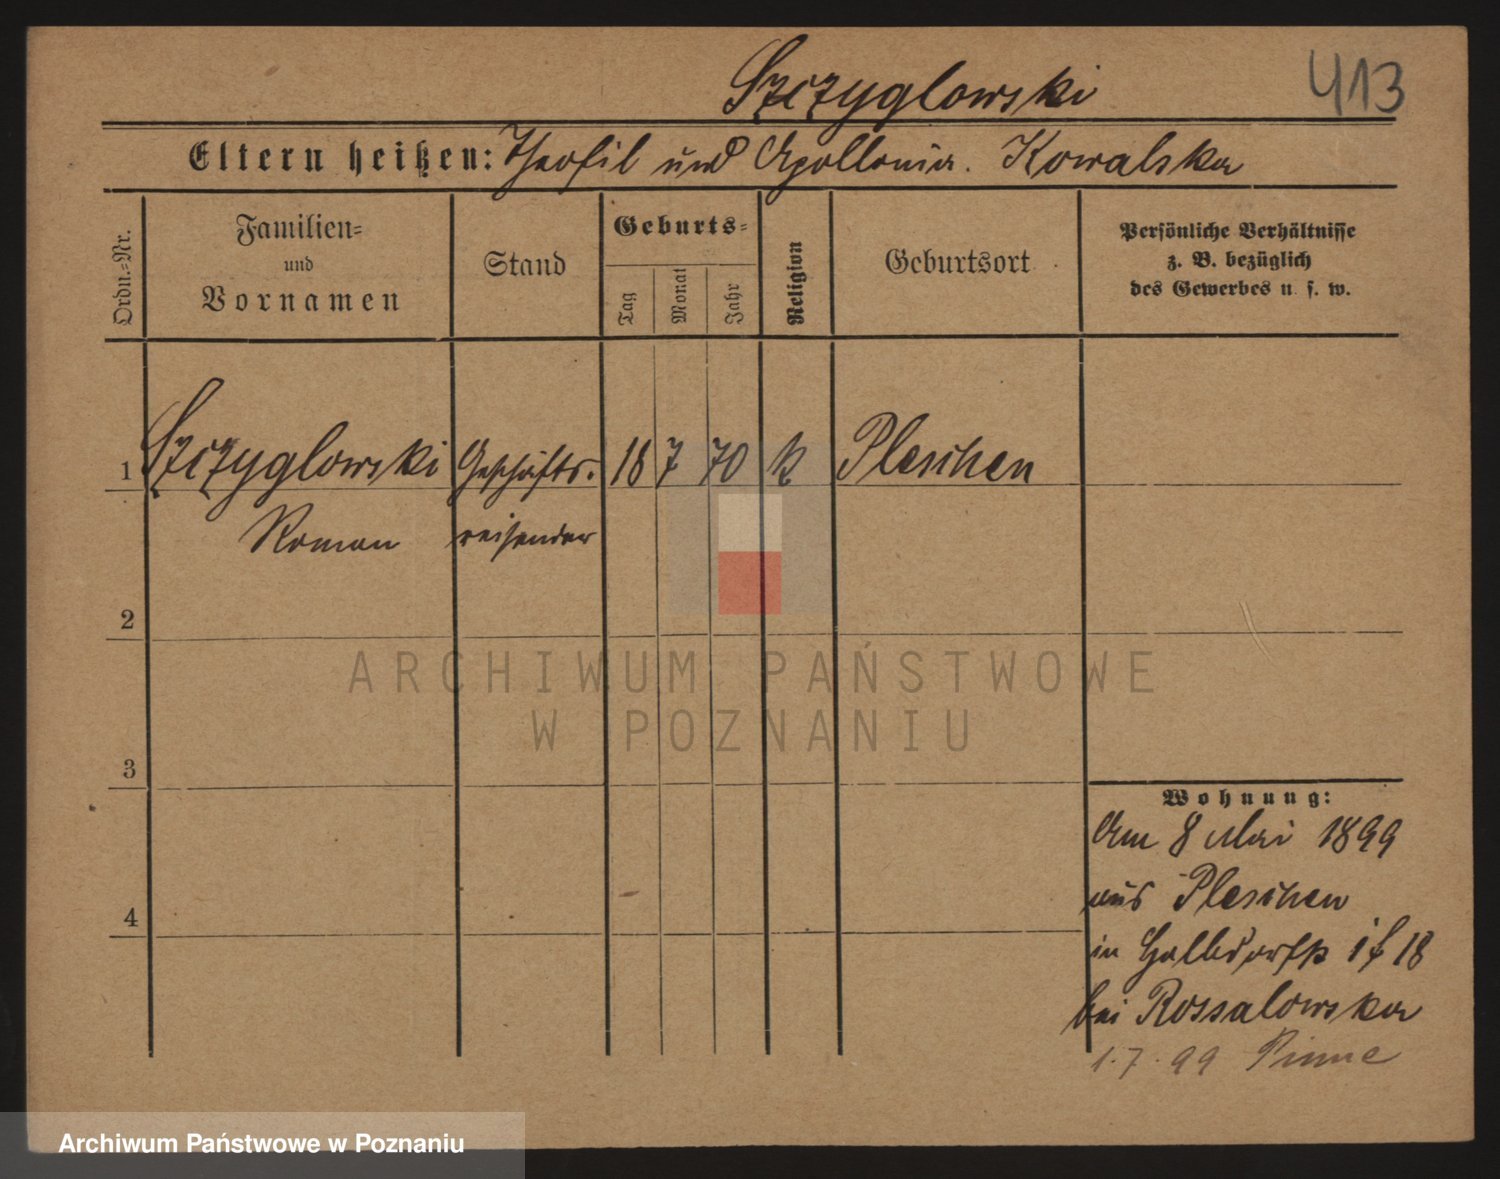 Szczyglowski
413
Eltern heißen: Theofil und Apollonia. Kowalska
Ordn.=Nr.
Familien=
und
Vornamen
Stand
Geburts=
Tag
Monat
Jahr
Religion
Geburtsort
Persönliche Verhältnisse
z. B. bezüglich
des Gewerbes u. s. w.
1 Szczyglowski Geschäfts. 18 7 70 k Pleschen
Roman reisender
2
ARCHIWUM PAŃSTWOWE
W POZNANIU
3
Wohnung:
Am 8 Mai 1899
aus Pleschen
4
in Halbdorfst 18
bei Rossalowska
1.7.99 Pinne
Archiwum Państwowe w Poznaniu